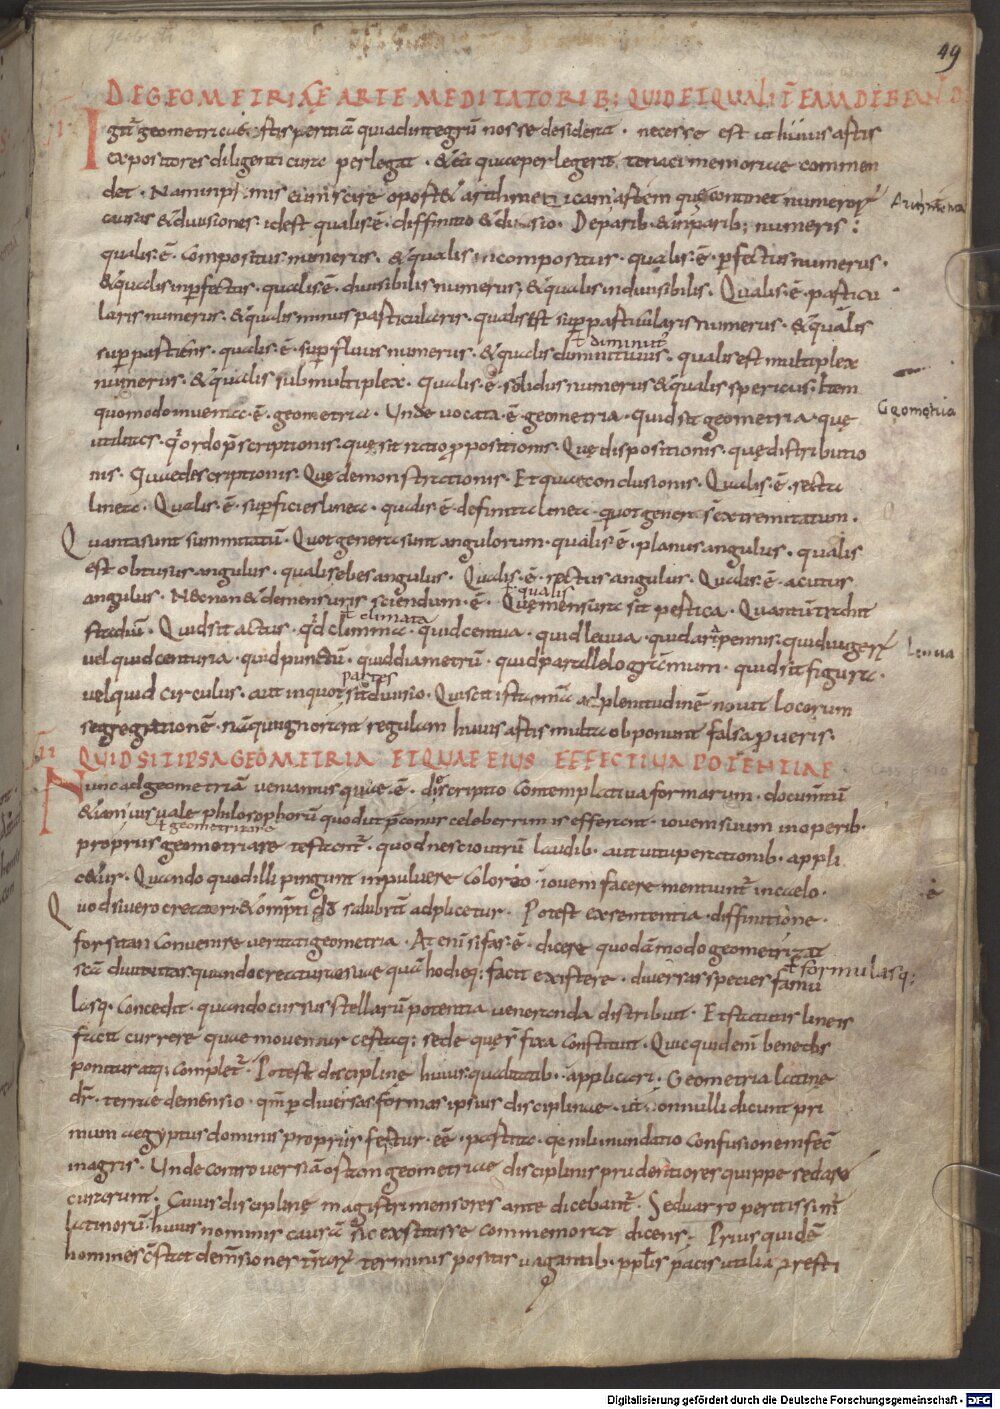 49
DE GEOMETRIAE ARTE MEDITATORIB; QUID ET QUALIT̄ EAM DEBEANT
I
Igit̄ geometricae artis peritiā qui ad integrū nosse desiderat · necesse est ut huius artis
expositores diligenti cura perlegat · & ea quae perlegerit tenaci memoriae commen
det · Nam inprimis eum scire oport& arithmeticam artem quę continet numerorꝝ
Arithmetica
causas & divisiones · id est qualis · ē · diffinitio & divisio · De parib · & inparib; numeris ;
qualis · ē · compositus numerus · & qualis incompositus · qualis · ē · perfectus numerus ·
& qualis inperfectus · qualis · ē · divisibilis numerus · & qualis indivisibilis · Qualis · ē · particu
laris numerus · & qualis minus particularis · qualis est superparticularis numerus · & qualis
superpartiens · qualis · ē · superfluus numerus · & qualis diminutivus · qualis est multiplex
ł diminut̄
numerus · & qualis submultiplex · qualis · ē · solidus numerus & qualis spericus · Item
quomodo inventa · ē · geometria · Unde vocata · ē · geometria · quid sit geometria · quę
Geometria
utilitas · q̄ ordo p̄scriptionis · quę sit ratio ꝓpositionis · Quę dispositionis · quę distributio
nis · Quae descriptionis · Quę demonstrationis · Et quae conclusionis · Qualis · ē · recta
linea · Qualis · ē · superficies linea · qualis · ē · definita linea · quot genera s̄ extremitatum ·
Quanta sunt summitatū · Quot genera sunt angulorum · qualis · ē · planus angulus · qualis
est obtusus angulus · qualis ebes angulus · Qualis · ē · rectus angulus · Qualis · ē · acutus
angulus · Necnon & de mensuris sciendum · ē · Quę mensura sit pertica · Quantū tradit
ł qualis
stadiū · Quid sit actus · q̄d climma · quid centua · quid levua · quid aripennis · quid iugerꝝ
ł climata
Levua
vel quid centuria · quid punctū · quid diametrū · quid parallelogramum · quid sit figura ·
vel quid circulus · aut in quot sit divisio · Qui scit ista omīa ad plenitudinē novit locorum
partes
segregationē · nā qui ignorant regulam huius artis multa obponunt falsa ꝓ veris ·
II
QUID SIT IPSA GEOMETRIA ET QUAE EIUS EFFECTIVA POTENTIAE ·
Nunc ad geometriā veniamus quae · ē · discriptio contemplativa formarum · documtū
& iam visuale philosophorū quod ut p̄conus celeberrimis efferant · iovem suum in operib ·
propriis geometriare testant̄ · quod nescio utrū laudib · aut vituperationib · appli
ł geometrizare
cetur · Quando quod illi pingunt in pulvere coloreo · iovem facere mentiunt̄ in caelo ·
Quod si vero creatori & omp̄ti dō salubrit̄ adplicetur · Potest ex sententia · diffinitione ·
forsitan convenire veritati geometria · At enī si fas · ē · dicere quodā modo geometrizat
scā divinitas quando creaturae sive quā hodieq; facit existere · diversas species famu
ł formulasq;
lasq · concedit · quando cursus stellarū potentia veneranda distribuit · Et statutis lineis
facit currere quae moventur certaq; sede quęs̄ fixa constituit · Quicquid enī bene dis
ponitur atq; complet̄ · Potest disciplinę huius qualitatib · applicari · Geometria latine
dr̄ · terrae demensio · qm̄ per diversas formas ipsius disciplinae · ut nonnulli dicunt pri
mum aegyptus dominis propriis fertur · eē · partita · q̄ nili inundatio confusionem fec̄
in agris · Unde controversiā ostan geometricae disciplinis prudentiores quippe sedare
curarunt · Cuius disciplinę magistri mensores ante dicebant̄ · Sed varro peritissim̄
latinorū · huius nominis causā sic exstitisse commemorat dicens · Prius quidē
homines cstat demsiones t̄rarꝝ terminis positis vagantib · ppl̄is pacis utilia praesti
Digitalisierung gefördert durch die Deutsche Forschungsgemeinschaft - DFG